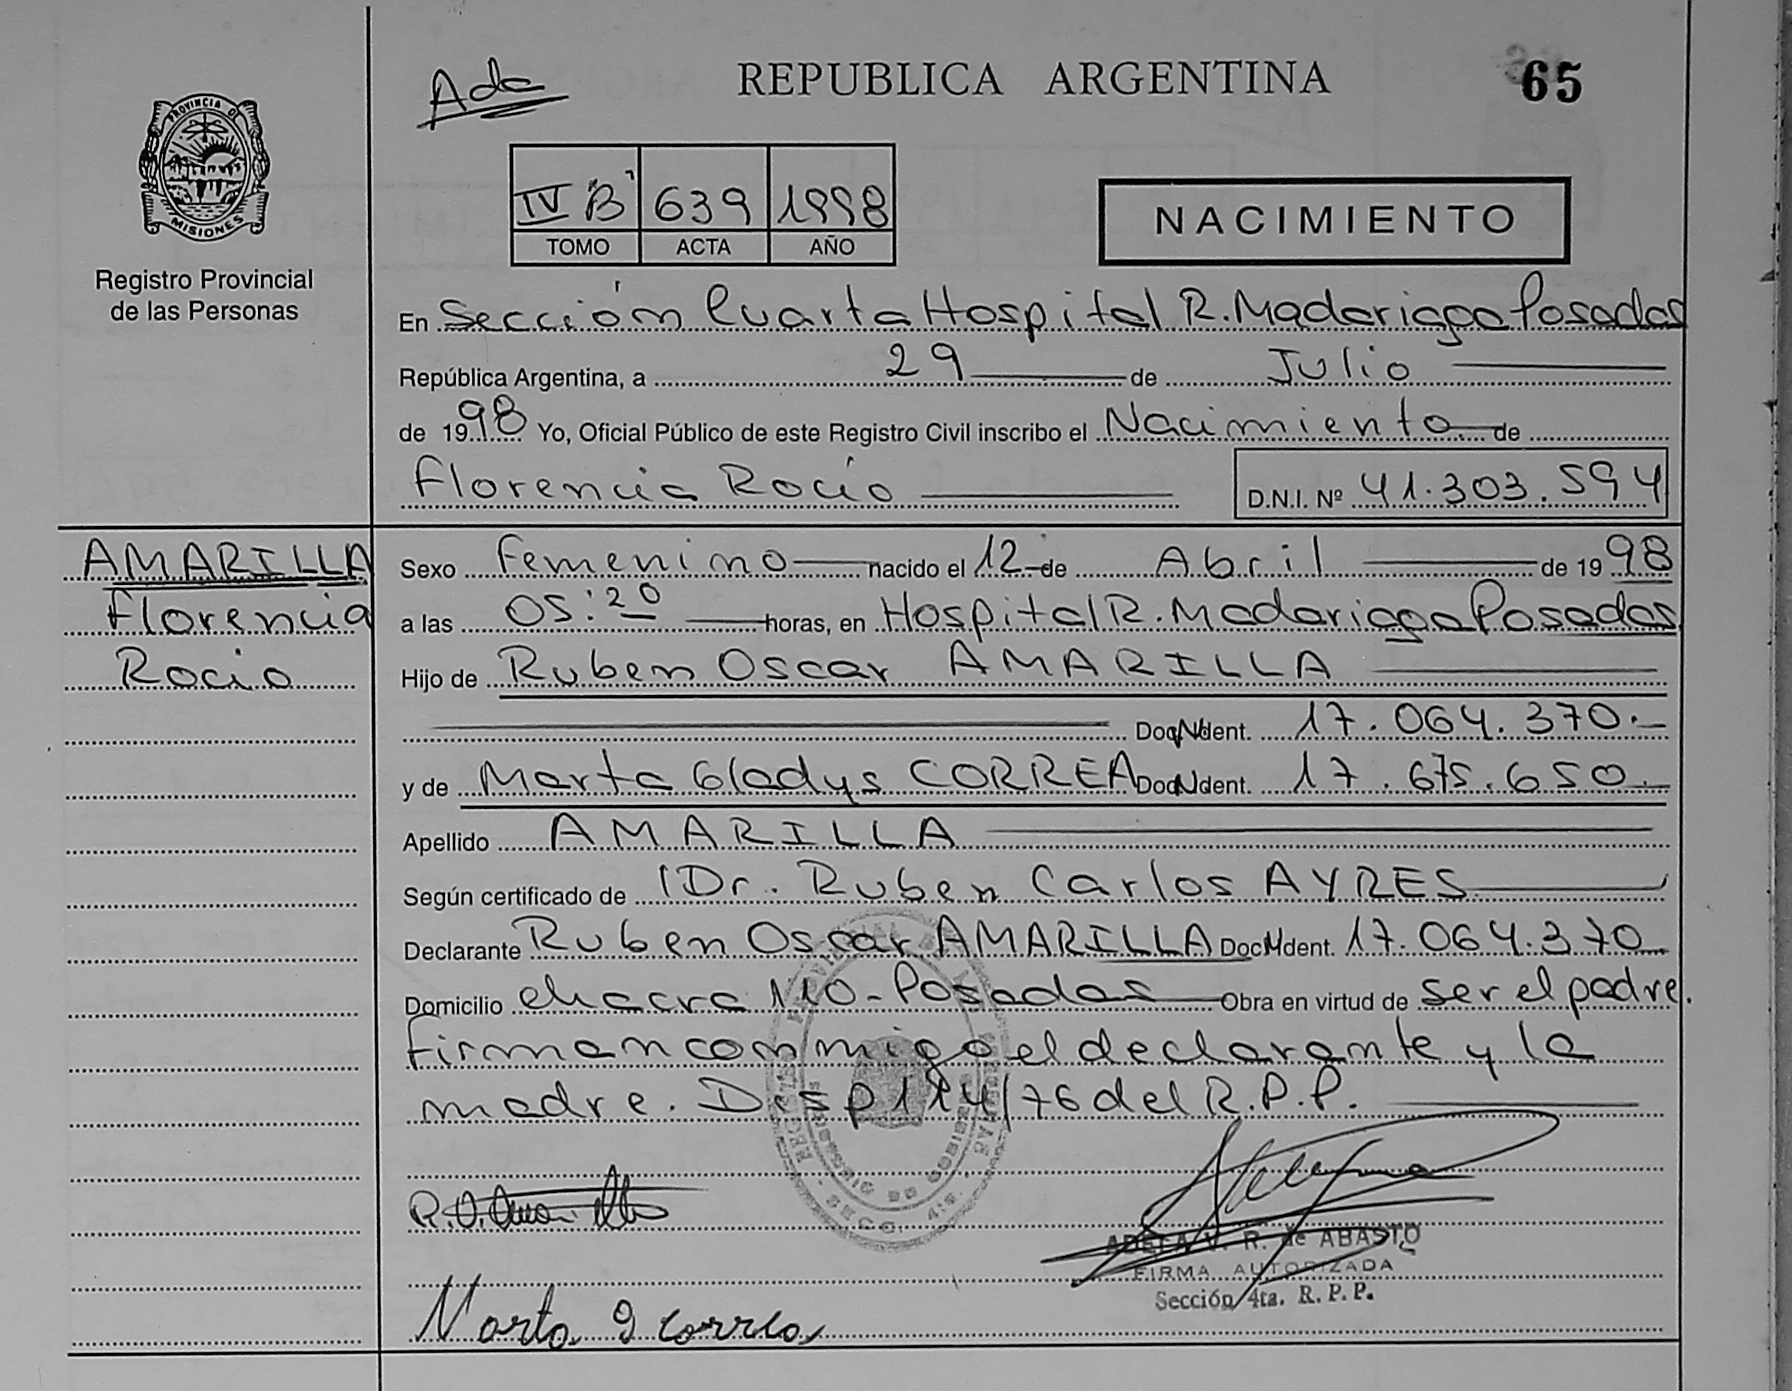 Ada
REPUBLICA ARGENTINA
65
PROVINCIA DE
MISIONES
Registro Provincial
de las Personas
IV "B" 639 1998
TOMO ACTA AÑO
NACIMIENTO
En Sección Cuarta Hospital R. Madariaga Posadas
República Argentina, a 29 de Julio
de 1998 Yo, Oficial Público de este Registro Civil inscribo el Nacimiento de
Florencia Rocío D.N.I. Nº 41.303.594
AMARILLA
Florencia
Rocio
Sexo Femenino nacido el 12 de Abril de 1998
a las 05:20 horas, en Hospital R. Madariaga Posadas
Hijo de Ruben Oscar AMARILLA
Doc. Ident. 17.064.370.-
y de Marta Gladys CORREA Doc. Ident. 17.675.650.-
Apellido AMARILLA
Según certificado de Dr. Ruben Carlos AYRES
Declarante Ruben Oscar AMARILLA Doc. Ident. 17.064.370
Domicilio chacra 110 - Posadas Obra en virtud de ser el padre.
Firman conmigo el declarante y la
madre. Disp 114/76 del R.P.P.
R.O. Amarilla
ADELA V. R. de ABASTO
FIRMA AUTORIZADA
Sección 4ta. R. P. P.
Marta G Correa